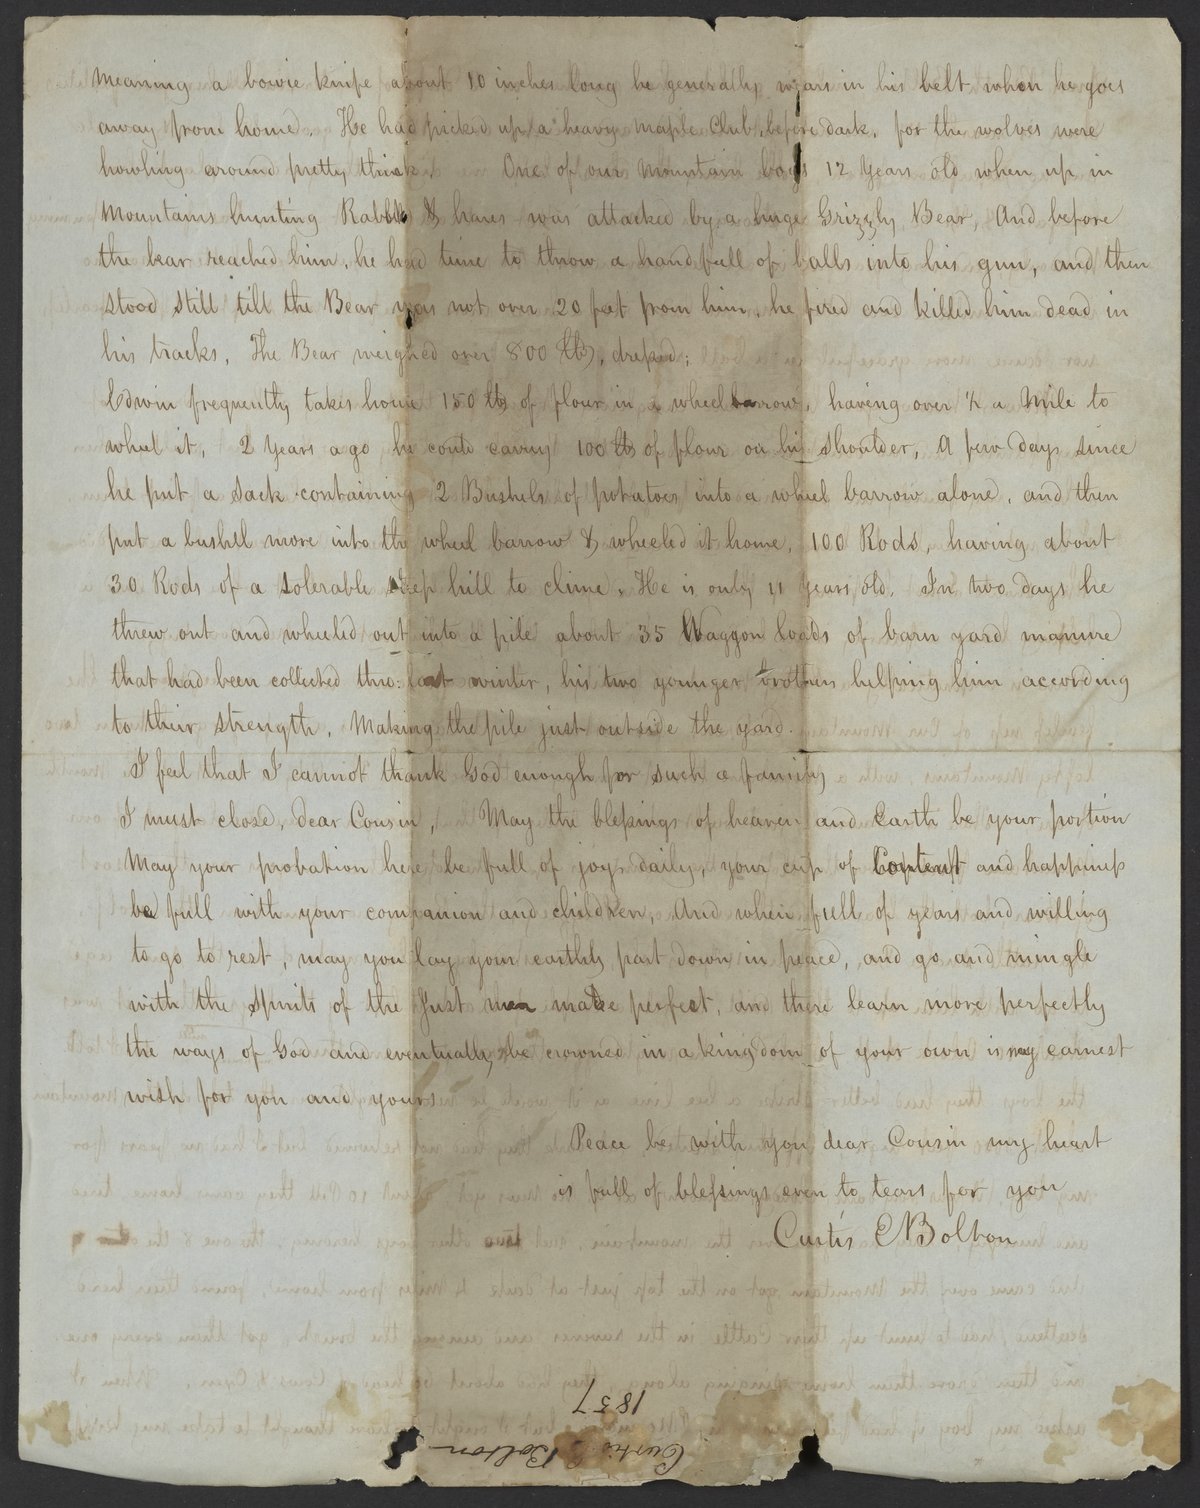 meaning a bowie knife about 10 inches long he generally wears in his belt when he goes
away from home. He had picked up a heavy maple Club, before dark, for the wolves were
howling around pretty thick. One of our Mountain boys 12 Years old when up in
Mountains hunting Rabbits & hares was attacked by a huge Grizzly Bear, And before
the bear reached him, he had time to throw a handfull of balls into his gun, and then
stood still till the Bear was not over 20 feet from him, he fired and killed him dead in
his tracks. The Bear weighed over 800 lbs, dressed;
Edwin frequently takes home 150 lbs of flour in a wheel barrow, having over ½ a Mile to
wheel it, 2 Years ago he could carry 100 lbs of flour on his shoulder, A few days since
he put a sack containing 2 Bushels of potatoes into a wheel barrow alone, and then
put a bushel more into the wheel barrow & wheeled it home, 100 Rods, having about
30 Rods of a tolerable steep hill to clime. He is only 11 Years old. In two days he
threw out and wheeled out into a pile about 35 Waggon loads of barn yard manure
that had been collected thro: last winter, his two younger brothers helping him according
to their strength, Making the pile just outside the yard.
I feel that I cannot thank God enough for such a family
I must close, dear Cousin, May the blessings of heaven and Earth be your portion
May your probation here be full of joys daily, your cup of Content and happiness
be full with your companion and children, And when full of years and willing
to go to rest, may you lay your earthly part down in peace, and go and mingle
with the spirits of the Just men made perfect, and there learn more perfectly
the ways of God and eventually be crowned in a kingdom of your own is my earnest
wish for you and yours
Peace be with you dear Cousin my heart
is full of blessings even to tears for you
Curtis E Bolton
1857
Curtis E Bolton